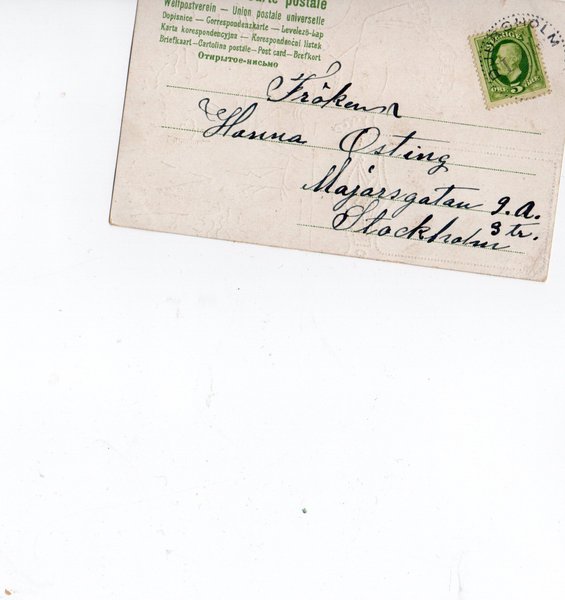 Carte postale
Weltpostverein — Union postale universelle
Dopisnice — Correspondenzkarte — Levelező-Lap
Karta korespondencyjna — Korespondenční lístek
Briefkaart — Cartolina postale — Post card — Brefkort
Открытое-письмо
SVERIGE
5 ÖRE 5 ÖRE
HOLM
Fröken
Hanna Östing
Majorsgatan 9. A.
3 tr.
Stockholm